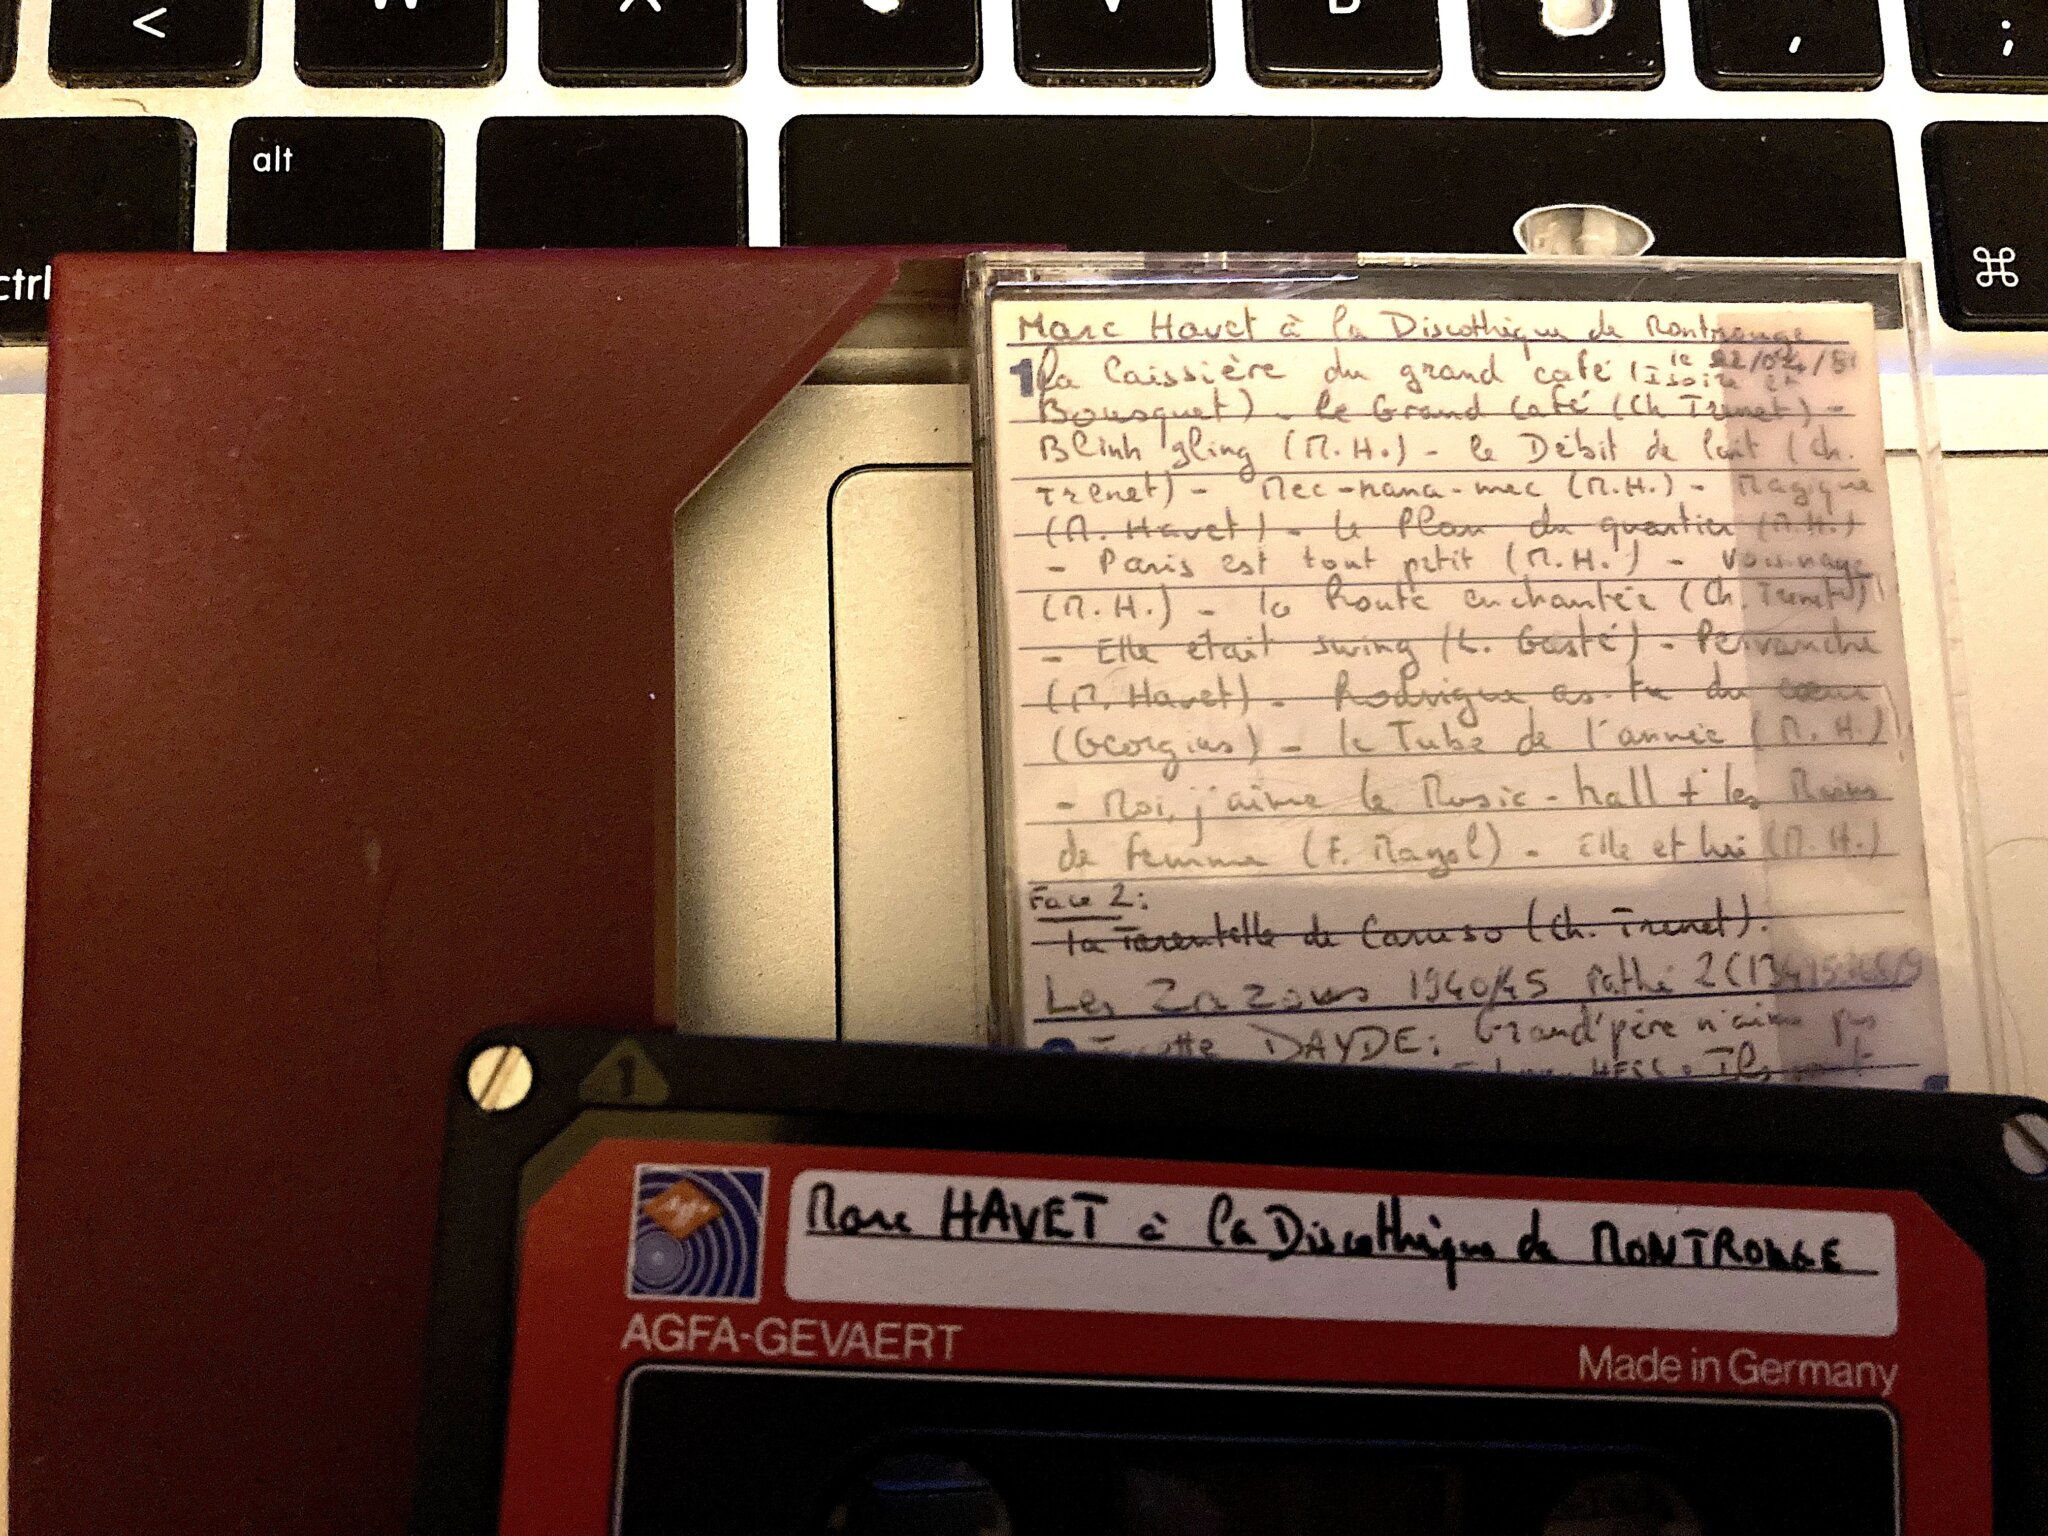 <
W
X
V
B
,
;
alt
ctrl
⌘
Marc Havet à la Discothèque de Montrouge
le 22/04/81
1 la Caissière du grand café (Isoire et
Bousquet) - le Grand Café (Ch Trenet) -
Blinh gling (M.H.) - le Débit de lait (Ch.
Trenet) - Mec-nana-mec (M.H.) - Magique
(M. Havet) - le Plan du quartier (M.H.)
- Paris est tout petit (M.H.) - Voisinage
(M.H.) - la Route enchantée (Ch. Trenet)
- Elle était swing (L. Gasté) - Pervanche
(M. Havet) - Rodrigue as-tu du coeur
(Georgius) - le Tube de l'année (M.H.)
- Moi, j'aime le Music-hall + les Mains
de femme (F. Mayol) - Elle et lui (M.H.)
Face 2:
la Tarentelle de Caruso (Ch. Trenet).
Les Zazous 1940/45 Pathé 2C134
DAYDE: Grand'père n'aime pas
HESS: Ils
1
Marc HAVET à la Discothèque de MONTROUGE
AGFA-GEVAERT
Made in Germany